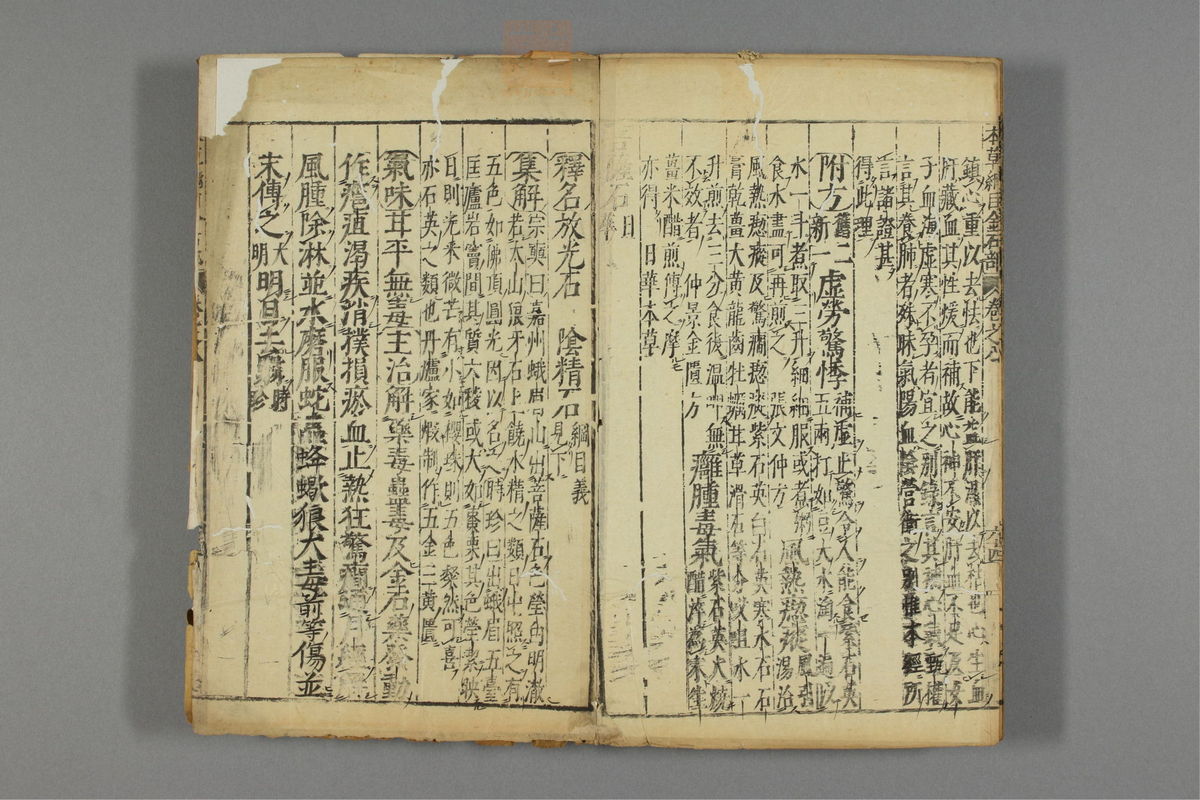 本草綱目金石部 卷之八
鎮心重以去怯也下能益肝濕以去枯也心生血
肝藏血其性煖而補故心神不安肝血不足及女
子血海虛寒不孕者宜之別錄言其補心氣甄權
言其養肺者殊昧氣陽血陰營衛之別惟本經所
言諸證甚
得此理
附方舊二新一
虛勞驚悸補虛止驚令人能食紫石英
五兩打如豆大水淘一遍以
水一斗煮取三升細細服或煮粥
食水盡可再煎之 張文仲方
風熱瘈瘲風引湯治
風熱瘈瘲及驚癇瘈瘲紫石英白石英寒水石石
膏乾薑大黃龍齒牡蠣甘草滑石等分㕮咀水一
升煎去三分食後溫呷無
不效者 仲景金匱方
癰腫毒氣紫石英火燒
醋淬為末生
薑米醋煎傅之摩
亦得 日華本草
菩薩石日華
釋名放光石 陰精石見下
綱目義
集解宗奭曰嘉州峨眉山出菩薩石色瑩白明澈
若太山狼牙石上饒水精之類日中照之有
五色如佛頂圓光因以名之時珍曰出峨眉五臺
匡廬岩竇間其質六稜或大如棗栗其色瑩潔映
日則光采微芒有小如櫻珠則五色粲然可喜
亦石英之類也丹爐家煅制作五金三黃匱
氣味甘平無毒主治解藥毒蠱毒及金石藥發動
作癰疽渴疾消撲損瘀血止熱狂驚癇通月經解
風腫除淋並水磨服蛇蟲蜂蠍狼犬毒箭等傷並
末傅之大明明目去翳時珍